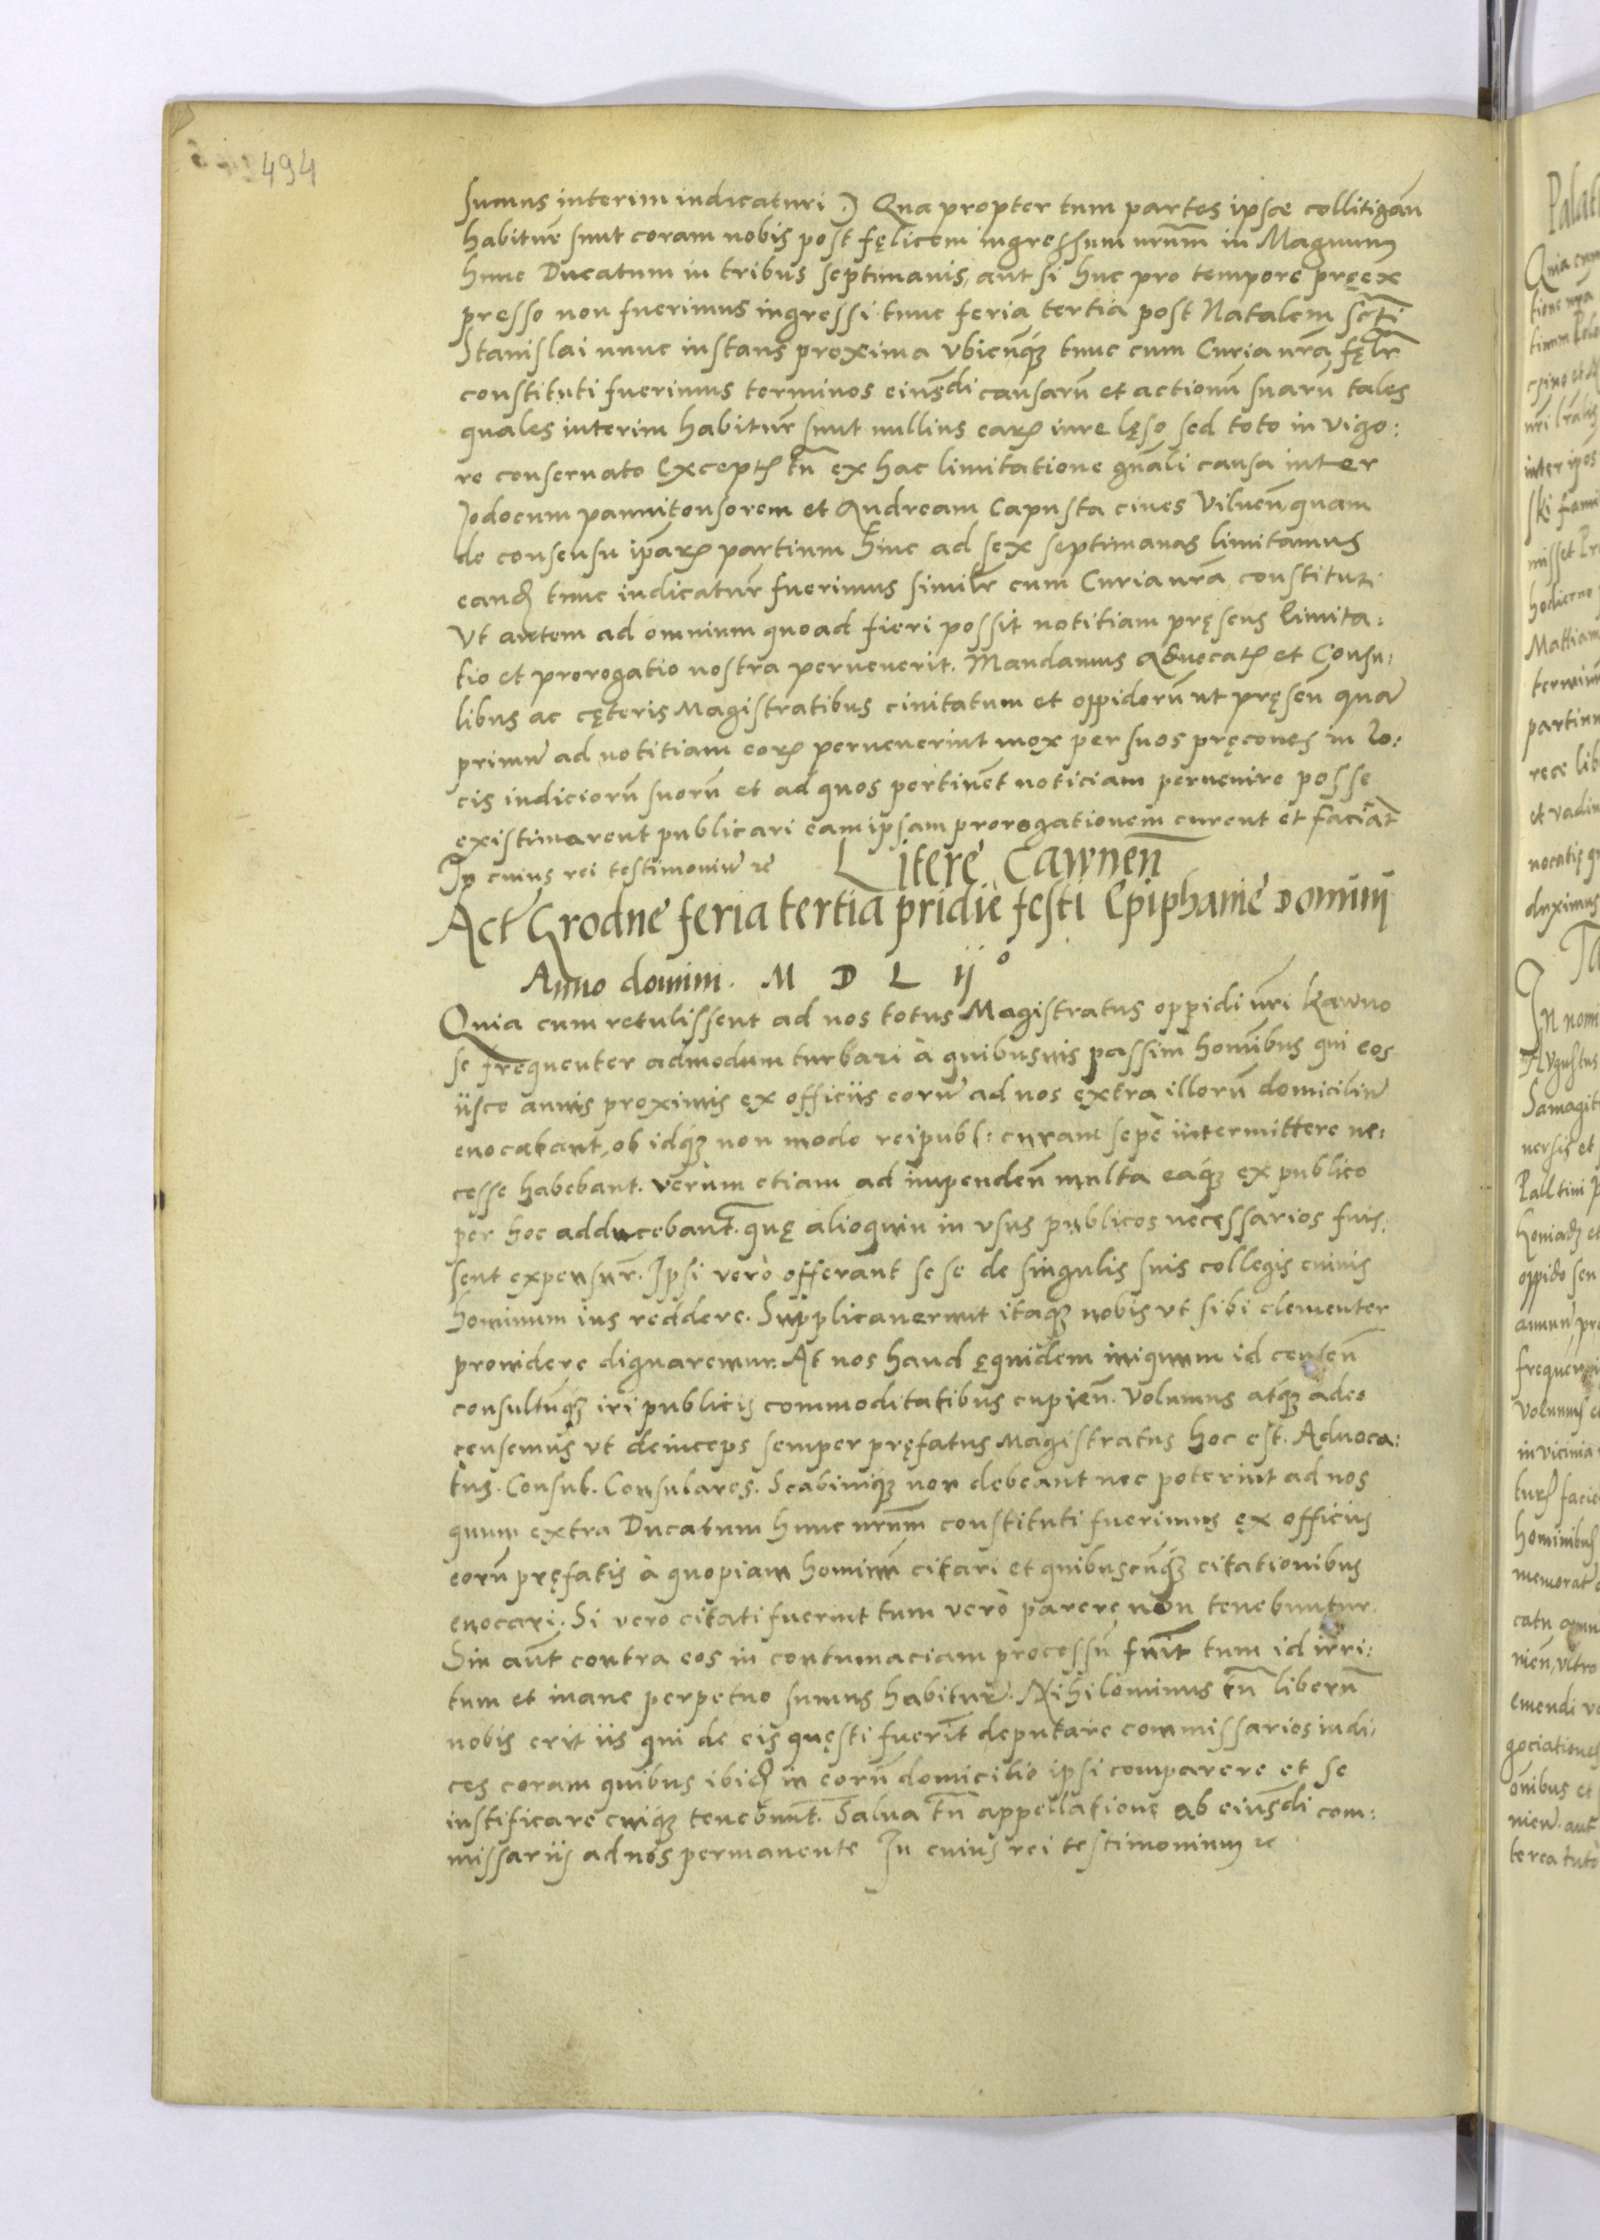 494
sumus interim iudicaturi .) Qua propter tum partes ipsæ collitigan̄
habiture sunt coram nobis post fęlicem ingressum nr̄um in Magnum
hunc Ducatum in tribus septimanis, aut si huc pro tempore pręex
presso non fuerimus ingressi tunc feria tertia post Natalem sc̄ti
Stanislai nunc instans proxima vbicūq₃ tunc cum Curia nr̄a fęlr̄
constituti fuerimus terminos eiusdi causarū et actionū suarū tales
quales interim habitur̄ sunt nullius earꝝ iure lęso sed toto in vigo:
re conseruato Exceptꝭ tn̄ ex hac limitatione gn̄ali causa inter
Jodocum pannitonsorem et Andream Capusta ciues Vilnen̄ quam
de consensu ip̄arꝝ partium hinc ad sex septimanas limitamus
eandꝫ tunc iudicatur̄ fuerimus similr̄ cum Curia nr̄a constituti
Vt autem ad omnium quoad fieri possit notitiam pręsens limita:
tio et prorogatio nostra peruenerit. Mandamus Aduocatꝭ et Consu:
libus ac cęteris Magistratibus ciuitatum et oppidorū ut pręsen̄ quā
primū ad notitiam eorꝝ peruenerint mox per suos pręcones in lo:
cis iudiciorū suorū et ad quos pertinēt noticiam peruenire posse
existimarent publicari eam ipsam prorogationem curent et faciāt
In cuius rei testimoniū ꝛc
Litere Cawnen̄
Act Grodne feria tertia pridie festi Epiphanie Domini
Anno domini. M D L ijº
Quia cum retulissent ad nos totus Magistratus oppidi nr̄i Kawno
se frequenter admodum turbari à quibusuis passim homībus qui eos
iisce annis proximis ex officiis eorū ad nos extra illorū domiciliū
euocabant, ob idq₃ non modo reipubl: curam sepe intermittere ne:
cesse habebant. verùm etiam ad impenden̄ multa eaq₃ ex publico
per hoc adducebant̄. quę alioquin in vsus publicos necessarios fuis:
sent expensur̄. Ipsi verò offerant sese de singulis suis collegis cuiuis
hominum ius reddere. Supplicauerunt itaq₃ nobis vt sibi clementer
prouidere dignaremur. At nos haud ęquidem iniquum id censen̄
consultūq₃ iri publicis commoditatibus cupien̄. Volumus atq₃ adeo
censemus vt deinceps semper pręfatus Magistratus hoc est. Aduoca:
tus. Consul. Consulares. Scabiniq₃ non debeant nec poterint ad nos
quum extra Ducatum hunc nr̄um constituti fuerimus ex officiis
eorū pręfatis à quopiam hominū citari et quibuscūq₃ citationibus
euocari. Si vero citati fuerint tum verò parere non tenebuntur.
Sin aūt contra eos in contumaciam processū fuit tum id irri:
tum et inane perpetuo sumus habitur̄. Nihilominus tn̄ liberū
nobis erit iis qui de eis quęsti fuerīt deputare commissarios iudi:
ces coram quibus ibidꝫ in eorū domicilio ipsi comparere et se
iustificare cuiq₃ tenebunt̄. Salua tn̄ appellatione ab eiusdi com:
missariis ad nos permanente In cuius rei testimonium ꝛc